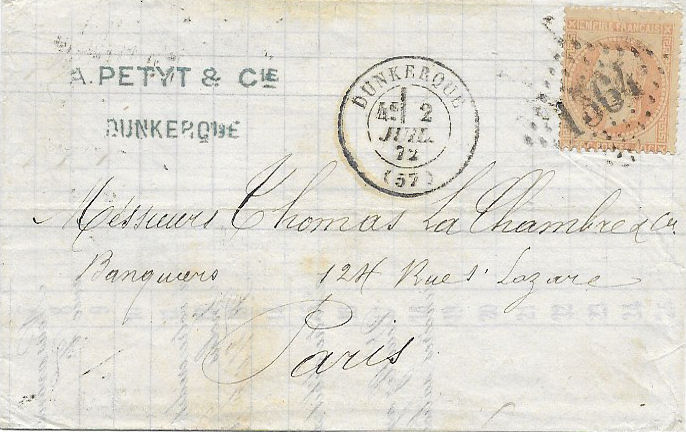 A. PETYT & CIE
DUNKERQUE
DUNKERQUE
2
JUIL.
72
(57)
EMPIRE FRANÇAIS
Messieurs Thomas La Chambre & Cie
Banquiers 124 Rue St Lazare
Paris